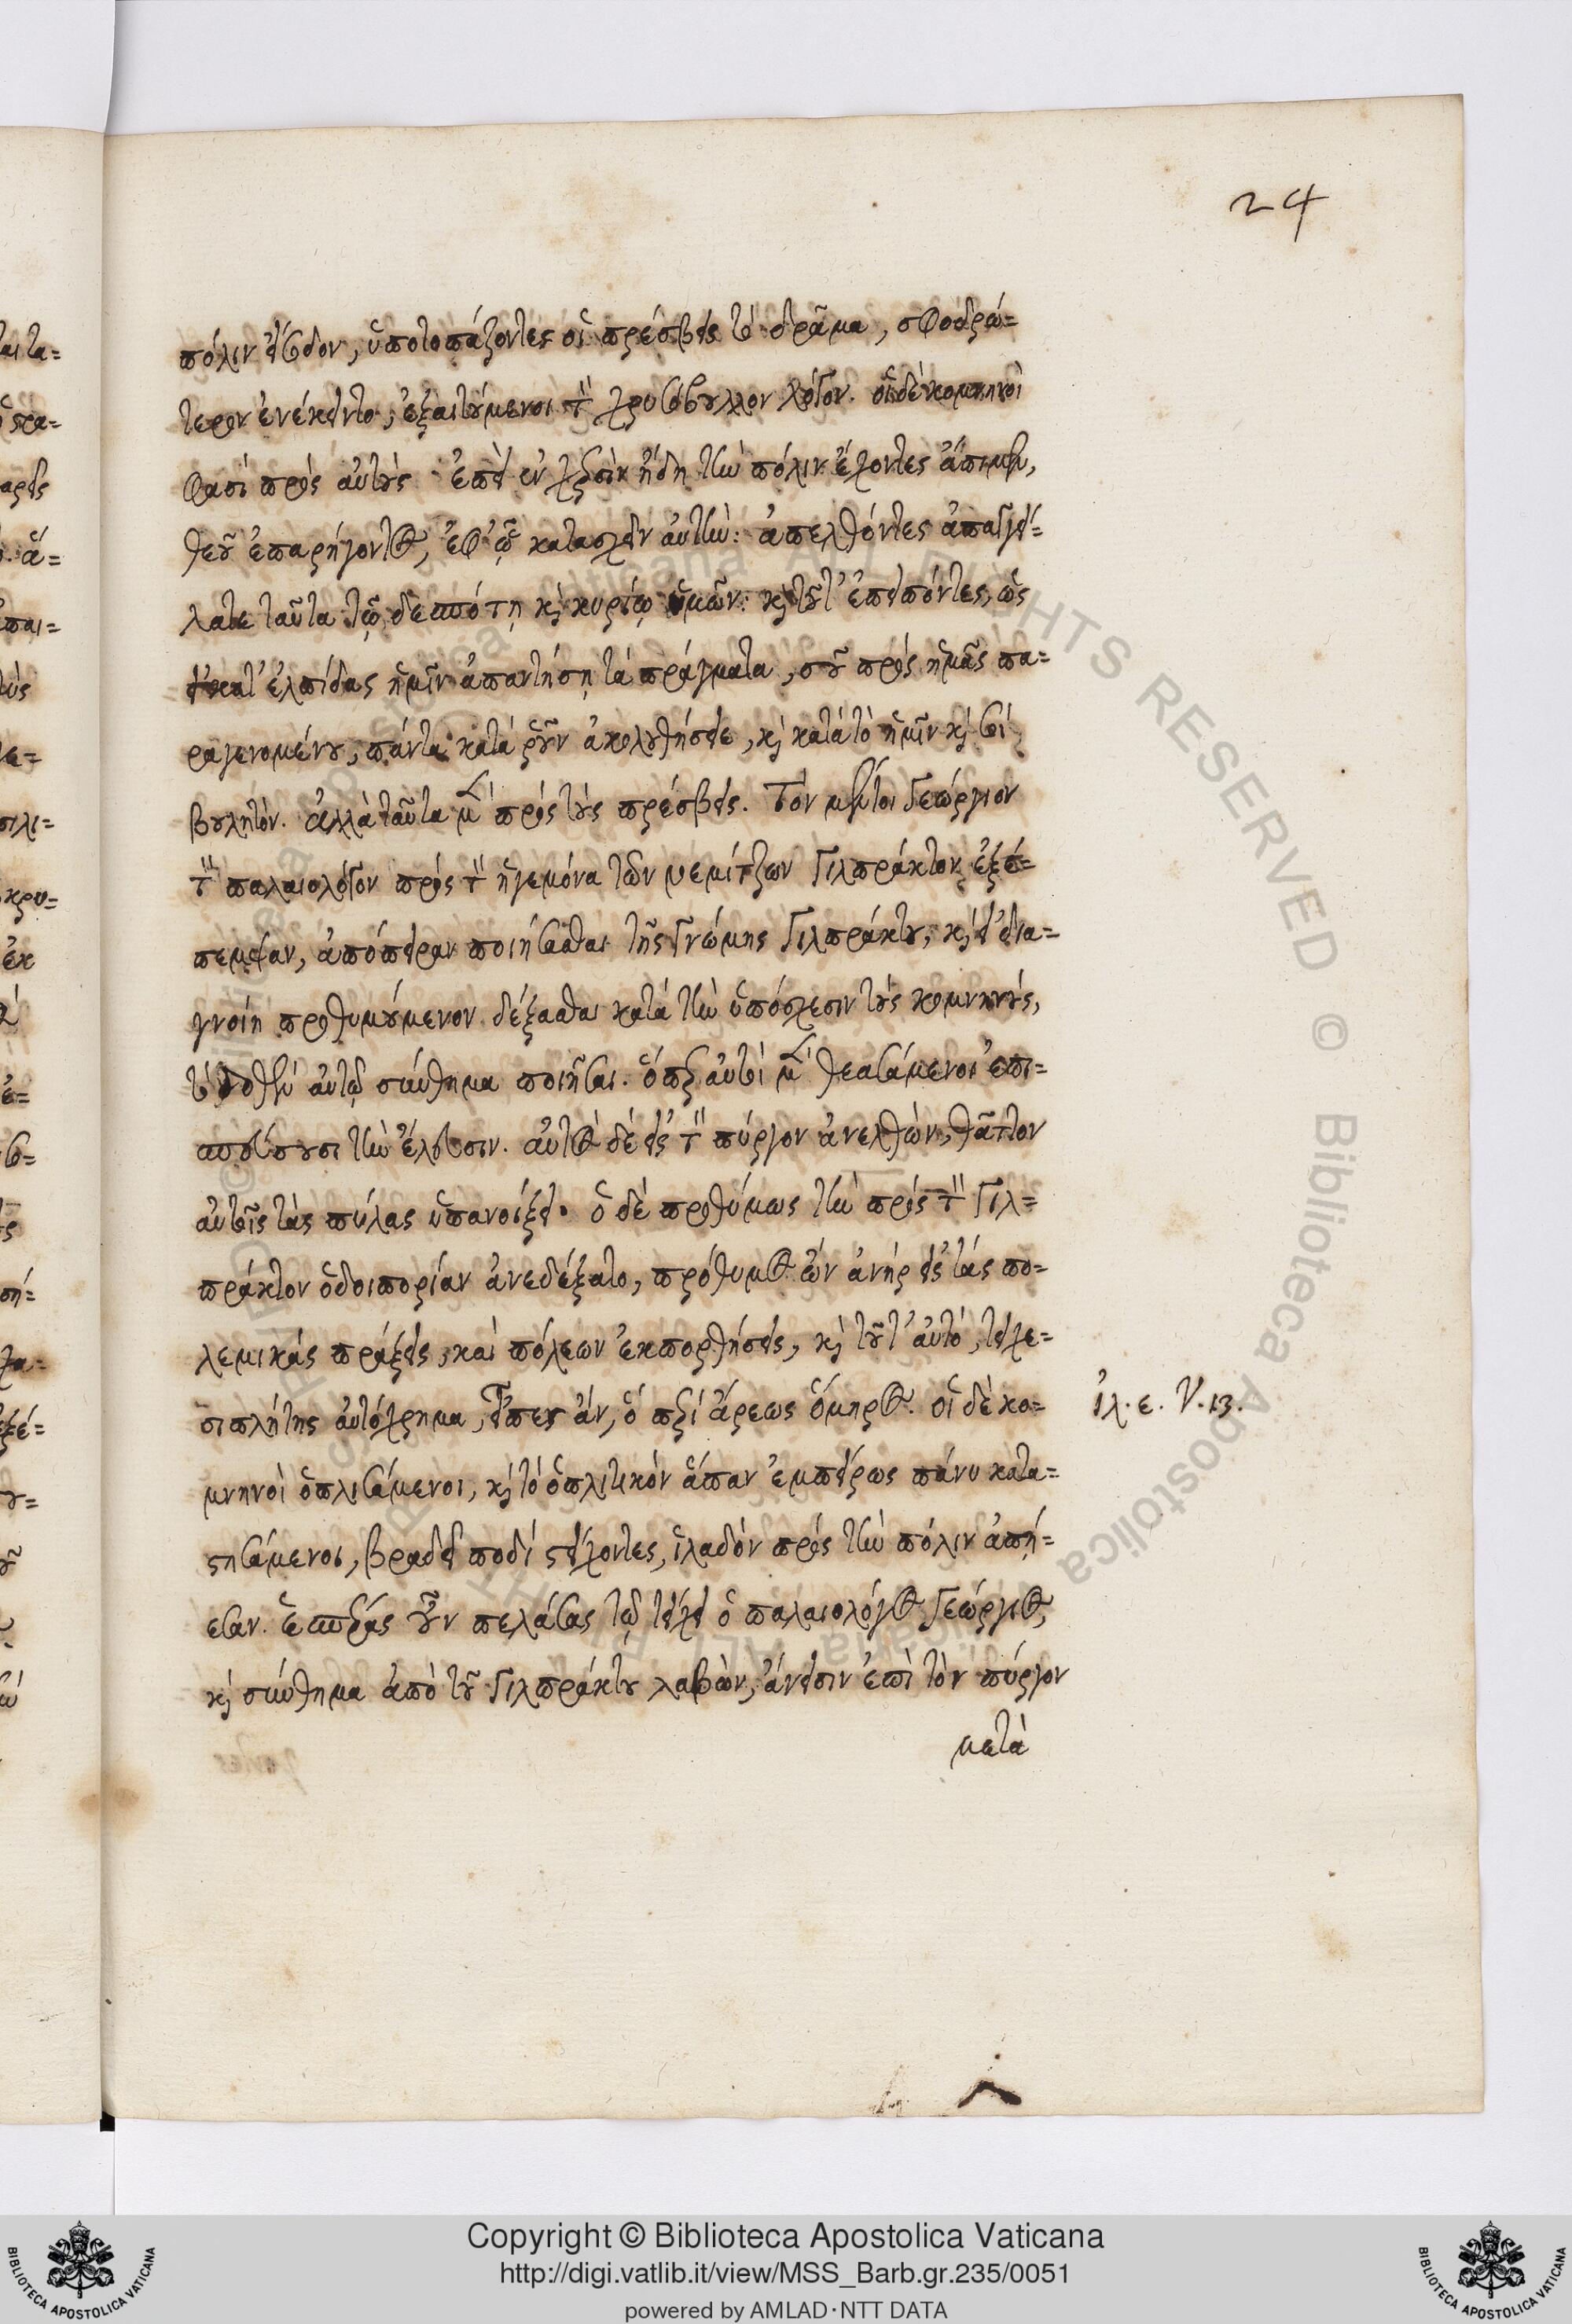 24
πόλιν εἴσοδον, ὑποτοπάζοντες οἱ πρέσβεις τὸ δρᾶμα, σφοδρώ=
τερον ἐνέκειντο, ἐξαιτούμενοι τὸν χρυσόβουλλον λόγον. οἱ δὲ κομνηνοὶ
φασὶ πρὸς αὐτούς· ἐπεὶ ἐν χερσὶν ἤδη τὴν πόλιν ἔχοντες ἄπιμεν,
θεοῦ ἐπαρήγοντος, ἐφ' ᾧ κατασχεῖν αὐτήν: ἀπελθόντες ἀπαγγεί=
λατε ταῦτα τῷ δεσπότῃ καὶ κυρίῳ ὑμῶν: καὶ τοῦτ' ἐπειπόντες, ὡς
εἰ κατ' ἐλπίδας ἡμῖν ἀπαντήσῃ τὰ πράγματα, σοῦ πρὸς ἡμᾶς πα=
ραγενομένου, πάντα κατὰ ῥοῦν ἀκολουθήσειε, καὶ κατὰ τὸ ἡμῖν καὶ σοὶ
βουλητόν. ἀλλὰ ταῦτα μὲν πρὸς τοὺς πρέσβεις. Τὸν μέντοι Γεώργιον
τὸν παλαιολόγον πρὸς τὸν ἡγεμόνα τῶν νεμίτζων Γιλπράκτον ἐξέ=
πεμψαν, ἀπόπειραν ποιήσασθαι τῆς γνώμης Γιλπράκτου, καὶ εἰ δια=
γνοίη προθυμούμενον δέξασθαι κατὰ τὴν ὑπόσχεσιν τοὺς κομνηνούς,
τὸ δοθὲν αὐτῷ σύνθημα ποιῆσαι. ὅπερ αὐτοὶ μὲν θεασάμενοι ἐπι=
σπεύσουσι τὴν ἔλευσιν. αὐτὸς δὲ εἰς τὸν πύργον ἀνελθών, θᾶττον
αὐτοῖς τὰς πύλας ὑπανοίξει. ὁ δὲ προθύμως τὴν πρὸς τὸν Γιλ=
πράκτον ὁδοιπορίαν ἀνεδέξατο, πρόθυμος ὢν ἀνὴρ εἰς τὰς πο=
λεμικὰς πράξεις, καὶ πόλεων ἐκπορθήσεις, καὶ τοῦτ' αὐτό, τειχε=
σιπλήτης αὐτόχρημα, εἶπεν ἄν, ὁ περὶ ἄρεως ὅμηρος. οἱ δὲ κο=
ἰλ. ε. V. 13.
μνηνοὶ ὁπλισάμενοι, καὶ τὸ ὁπλιτικὸν ἅπαν ἐμπείρως πάνυ κατα=
στησάμενοι, βραδεῖ ποδὶ στείχοντες, ἰλαδὸν πρὸς τὴν πόλιν ἀπῄ=
εσαν. ἑσπέρας οὖν πελάσας τῷ τείχει ὁ παλαιολόγος Γεώργιος,
καὶ σύνθημα ἀπὸ τοῦ Γιλπράκτου λαβών, ἄνεισιν ἐπὶ τὸν πύργον
μετὰ
Copyright © Biblioteca Apostolica Vaticana
http://digi.vatlib.it/view/MSS_Barb.gr.235/0051
powered by AMLAD·NTT DATA